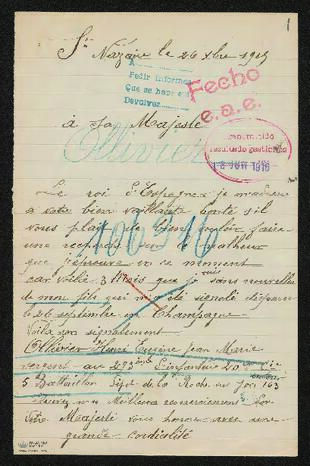 St Nazaire le 26 xbre 1915
A
Pedir informes
Que se hace
Devolver
Fecho
e.a.e.
à sa Majesté
Ollivier
resultado gestiones
Le roi d'Espagne je m'adresse
a votre bien vaillante bonté s'il
vous plait de bien vouloir faire
une recherche du malheur
que j'éprouve en ce moment
car voilà 3 Mois que je suis sans nouvelles
de mon fils qui m'a été signalé disparu
le 26 septembre en Champagne
Voilà son signalement
Ollivier Henri Eugène Jean Marie
sergent au 293me d'infanterie 20me Cie
5 Bataillon Dépt de la Roche sur Yon 163
Meilleurs remerciements
Majesté vous honore avec une
grande cordialité